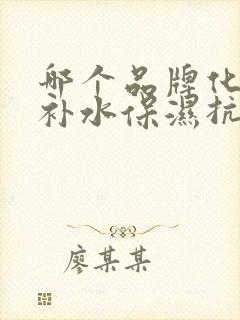 哪个品牌化
补水保濕抗
廖某某